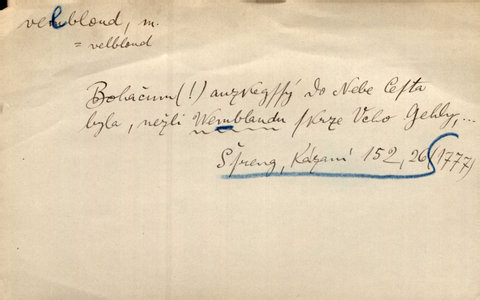 velblond, m.
= velblond
Bohácům (!) auzkegſſý do Nebe Ceſta
byla, nežli Wemblandu ſkrze Vcho Gehly,...
Sſreng, Kázani 152, 26 (1777)